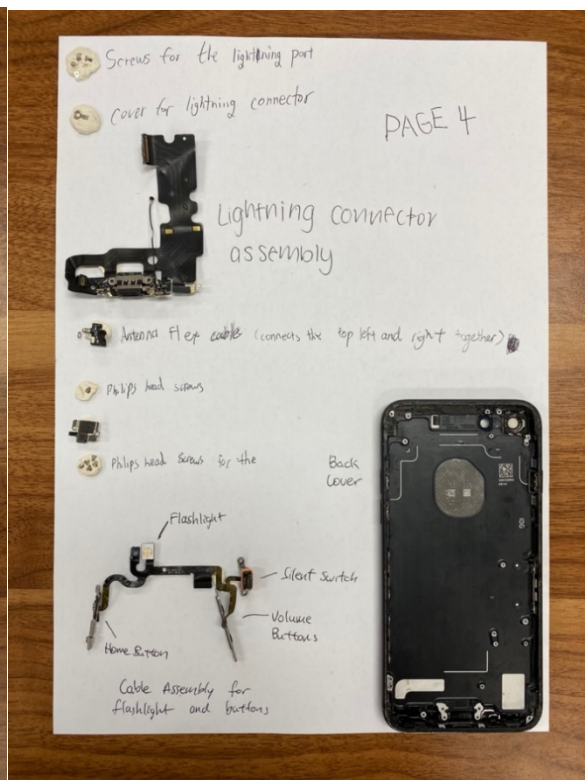 Screws for the lightning port
Cover for lightning connector
PAGE 4
Lightning connector
assembly
Antenna Flex cable (connects the top left and right together)
Philips head screws
Philips head screws for the
Back
Cover
Flashlight
Silent Switch
Volume
Buttons
Home Button
Cable Assembly for
flashlight and buttons